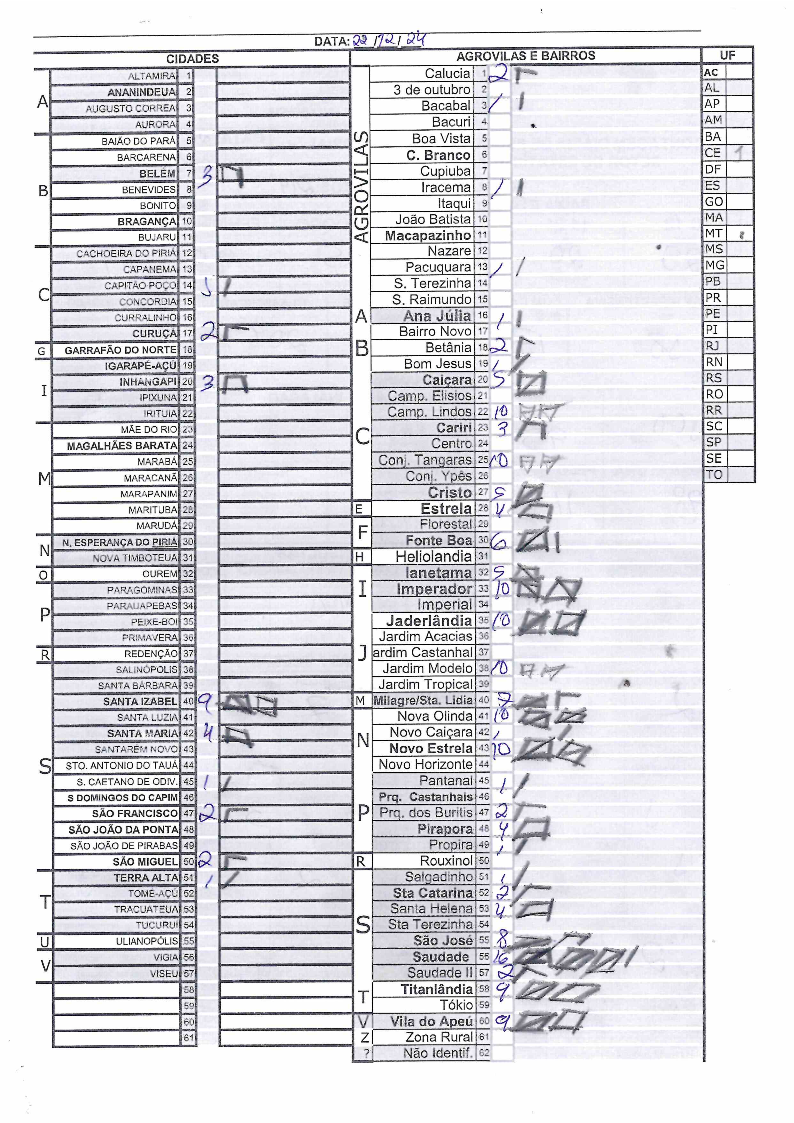 DATA: 22/12/24
CIDADES
A
ALTAMIRA 1
ANANINDEUA 2
AUGUSTO CORREA 3
AURORA 4
B
BAIÃO DO PARÁ 5
BARCARENA 6
BELÉM 7 3
BENEVIDES 8
BONITO 9
BRAGANÇA 10
BUJARU 11
C
CACHOEIRA DO PIRIA 12
CAPANEMA 13
CAPITÃO POÇO 14 1
CONCORDIA 15
CURRALINHO 16
CURUÇA 17 2
G
GARRAFÃO DO NORTE 18
I
IGARAPÉ-AÇÚ 19
INHANGAPI 20 3
IPIXUNA 21
IRITUIA 22
M
MÃE DO RIO 23
MAGALHÃES BARATA 24
MARABÁ 25
MARACANÃ 26
MARAPANIM 27
MARITUBA 28
MARUDÁ 29
N
N. ESPERANÇA DO PIRIA 30
NOVA TIMBOTEUA 31
O
OUREM 32
P
PARAGOMINAS 33
PARAUAPEBAS 34
PEIXE-BOI 35
PRIMAVERA 36
R
REDENÇÃO 37
S
SALINÓPOLIS 38
SANTA BÁRBARA 39
SANTA IZABEL 40 9
SANTA LUZIA 41
SANTA MARIA 42 4
SANTARÉM NOVO 43
STO. ANTONIO DO TAUÁ 44
S. CAETANO DE ODIV. 45 1
S DOMINGOS DO CAPIM 46
SÃO FRANCISCO 47 2
SÃO JOÃO DA PONTA 48
SÃO JOÃO DE PIRABAS 49
SÃO MIGUEL 50 2
T
TERRA ALTA 51 1
TOMÉ-AÇÚ 52
TRACUATEUA 53
TUCURUI 54
U
ULIANOPÓLIS 55
V
VIGIA 56
VISEU 57
58
59
60
61
AGROVILAS E BAIRROS
AGROVILAS
Calucia 1 2
3 de outubro 2
Bacabal 3 1
Bacuri 4
Boa Vista 5
C. Branco 6
Cupiuba 7
Iracema 8 1
Itaqui 9
João Batista 10
Macapazinho 11
Nazare 12
Pacuquara 13 1
S. Terezinha 14
S. Raimundo 15
A
Ana Júlia 16 1
B
Bairro Novo 17
Betânia 18 2
Bom Jesus 19 1
C
Caiçara 20 5
Camp. Elisios 21
Camp. Lindos 22 10
Cariri 23 3
Centro 24
Conj. Tangaras 25 10
Conj. Ypês 26
Cristo 27 5
E
Estrela 28 4
F
Florestal 29
Fonte Boa 30 6
H
Heliolandia 31
I
Ianetama 32 5
Imperador 33 10
Imperial 34
J
Jaderlândia 35 10
Jardim Acacias 36
ardim Castanhal 37
Jardim Modelo 38 10
Jardim Tropical 39
M
Milagre/Sta. Lidia 40 7
N
Nova Olinda 41 10
Novo Caiçara 42 1
Novo Estrela 43 10
Novo Horizonte 44
P
Pantanal 45 1
Prq. Castanhais 46
Prq. dos Buritis 47 2
Pirapora 48 4
Propira 49 1
R
Rouxinol 50
S
Salgadinho 51 1
Sta Catarina 52 2
Santa Helena 53 4
Sta Terezinha 54
São José 55 8
Saudade 56 16
Saudade II 57 2
T
Titanlândia 58 9
Tókio 59
V
Vila do Apeú 60 9
Z
Zona Rural 61
?
Não Identif. 62
UF
AC
AL
AP
AM
BA
CE 1
DF
ES
GO
MA
MT
MS
MG
PB
PR
PE
PI
RJ
RN
RS
RO
RR
SC
SP
SE
TO